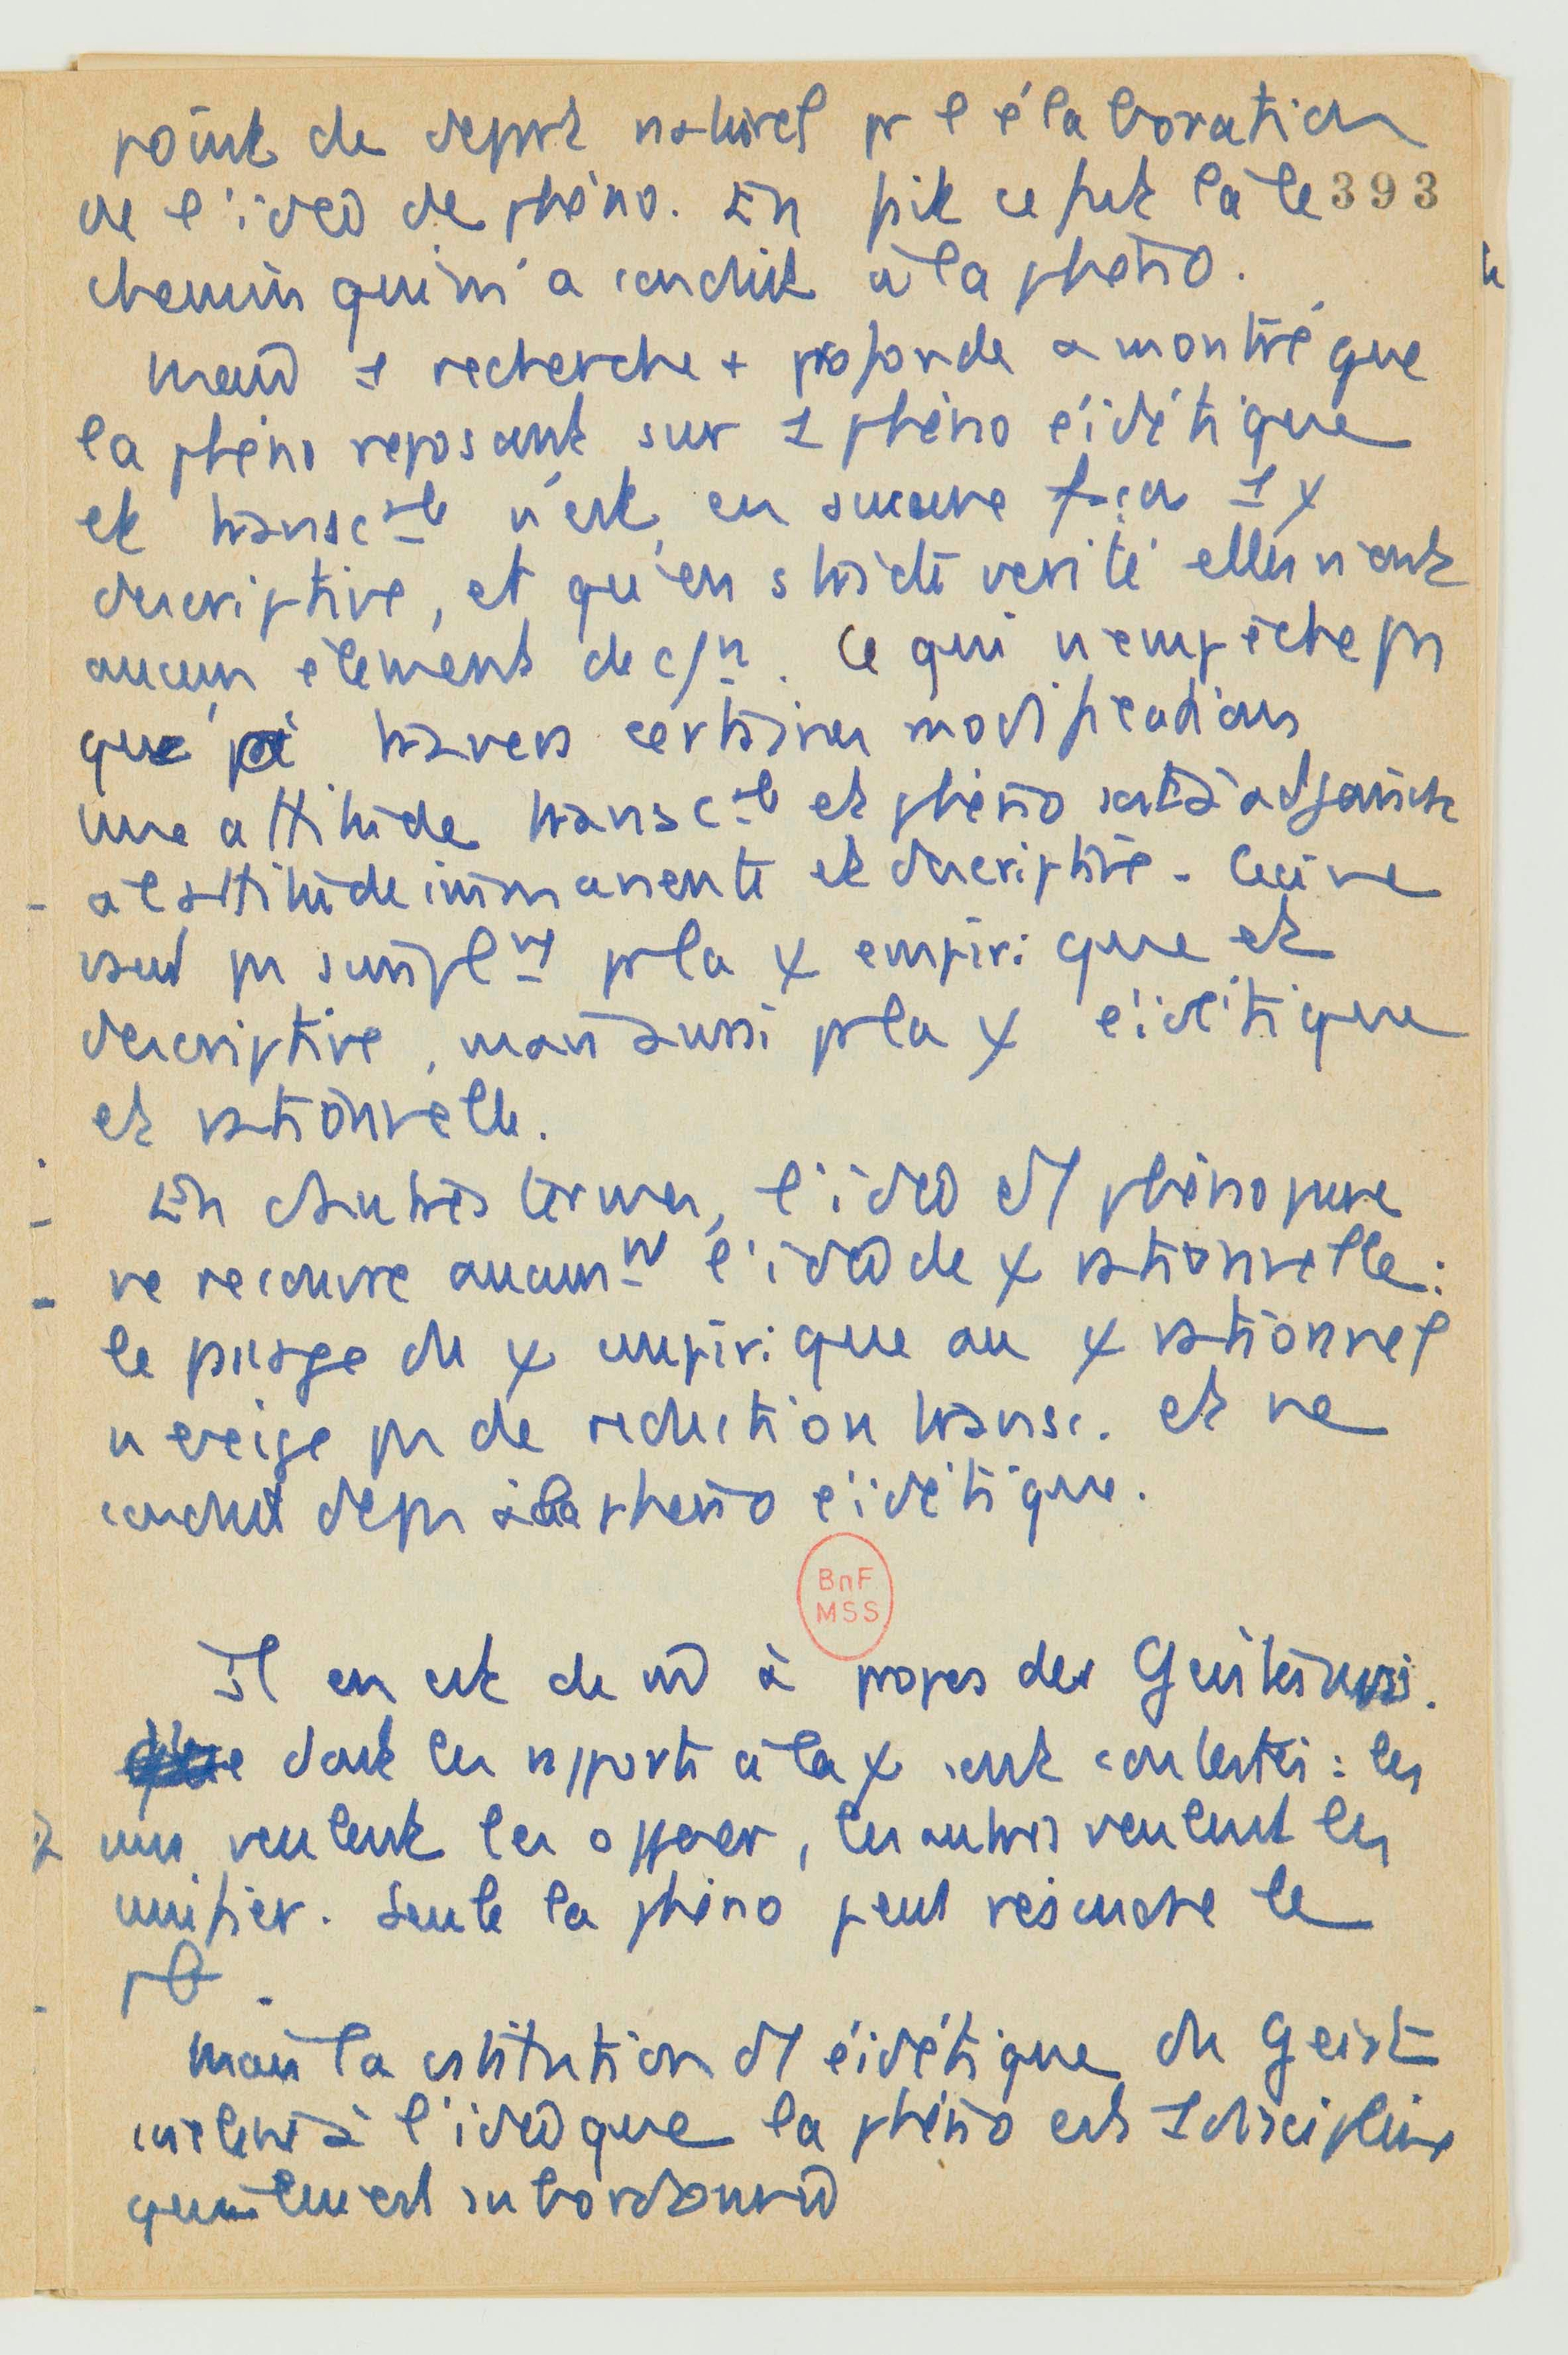 point de départ naturel pr l'élaboration
de l'idée de phéno. En fait ce fut là le 393
chemin qui m'a conduit à la phéno.
Mais 1 recherche + profonde a montré que
la phéno reposant sur 1 phéno éidétique
et transc-le n'est en aucune façon 1 χ
descriptive, et qu'en stricte vérité elles n'ont
aucun élément de c/n. Ce qui n'empêche pas
que travers certaines modifications
une attitude transc-le et phéno soit adjointe
à l'attitude immanente et descriptive. Ceci ne
vaut pas simplnt pr la χ empirique et
descriptive, mais aussi pr la χ éidétique
et rationnelle.
En d'autres termes, l'idée d'1 phéno pure
ne recouvre aucunnt l'idée de χ rationnelle :
le passage du χ empirique au χ rationnel
n'exige pas de réduction transc. et ne
conduit dc pas à la phéno éidétique.
BnF
MSS
Il en est de m̂ à propos des Geisteswiss.
dont les rapports à la χ sont contestés : les
uns veulent les opposer, les autres veulent les
unifier. Seule la phéno peut résoudre le
pb.
Mais la cstitution d'1 éidétique du Geist
l'idée que la phéno est 1 discipline
qui lui est subordonnée